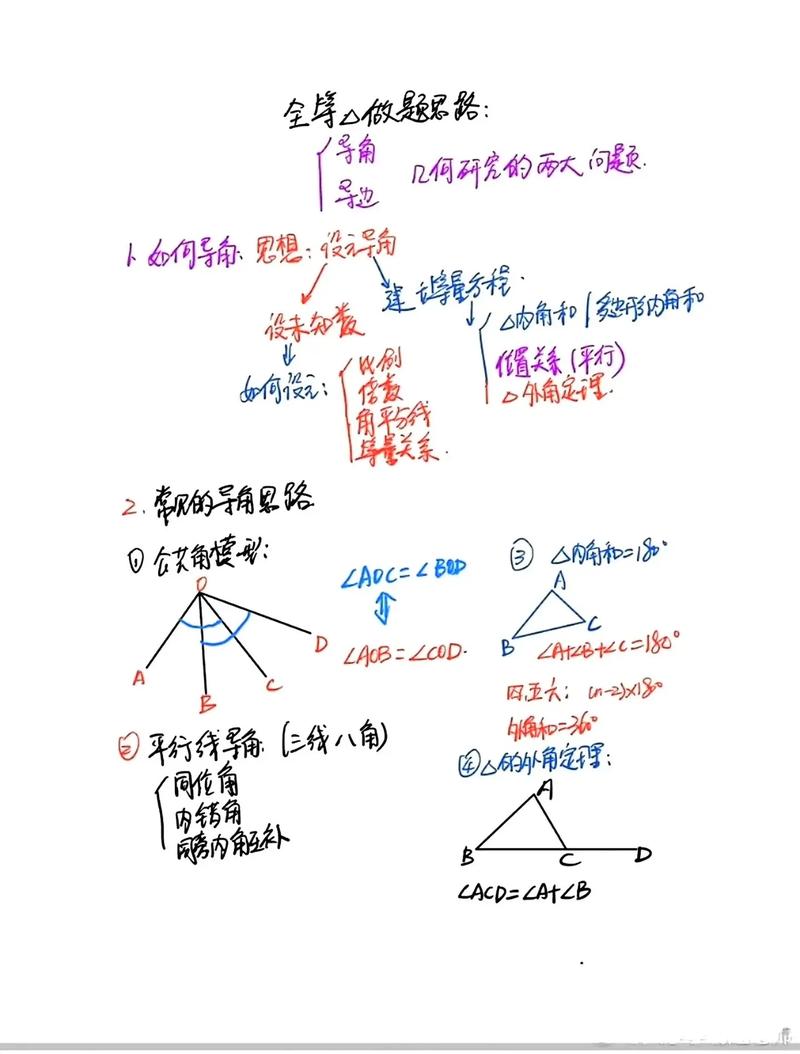 全等△做题思路:
导角
导边
几何研究的两大问题.
1. 如何导角: 思想: 设元导角
设未知数
建立等量方程.
如何设元:
比例
倍数
角平分线
等量关系.
△内角和/多边形内角和
位置关系(平行)
△外角定理.
2. 常见的导角思路
① 公共角模型:
O
A
B
C
D
∠AOC=∠BOD
∠AOB=∠COD.
② 平行线导角 (三线八角)
同位角
内错角
同旁内角互补
③ △内角和=180°
A
B
C
∠A+∠B+∠C=180°
四五六: (n-2)×180
外角和=360°
④ △的外角定理:
A
B
C
D
∠ACD=∠A+∠B